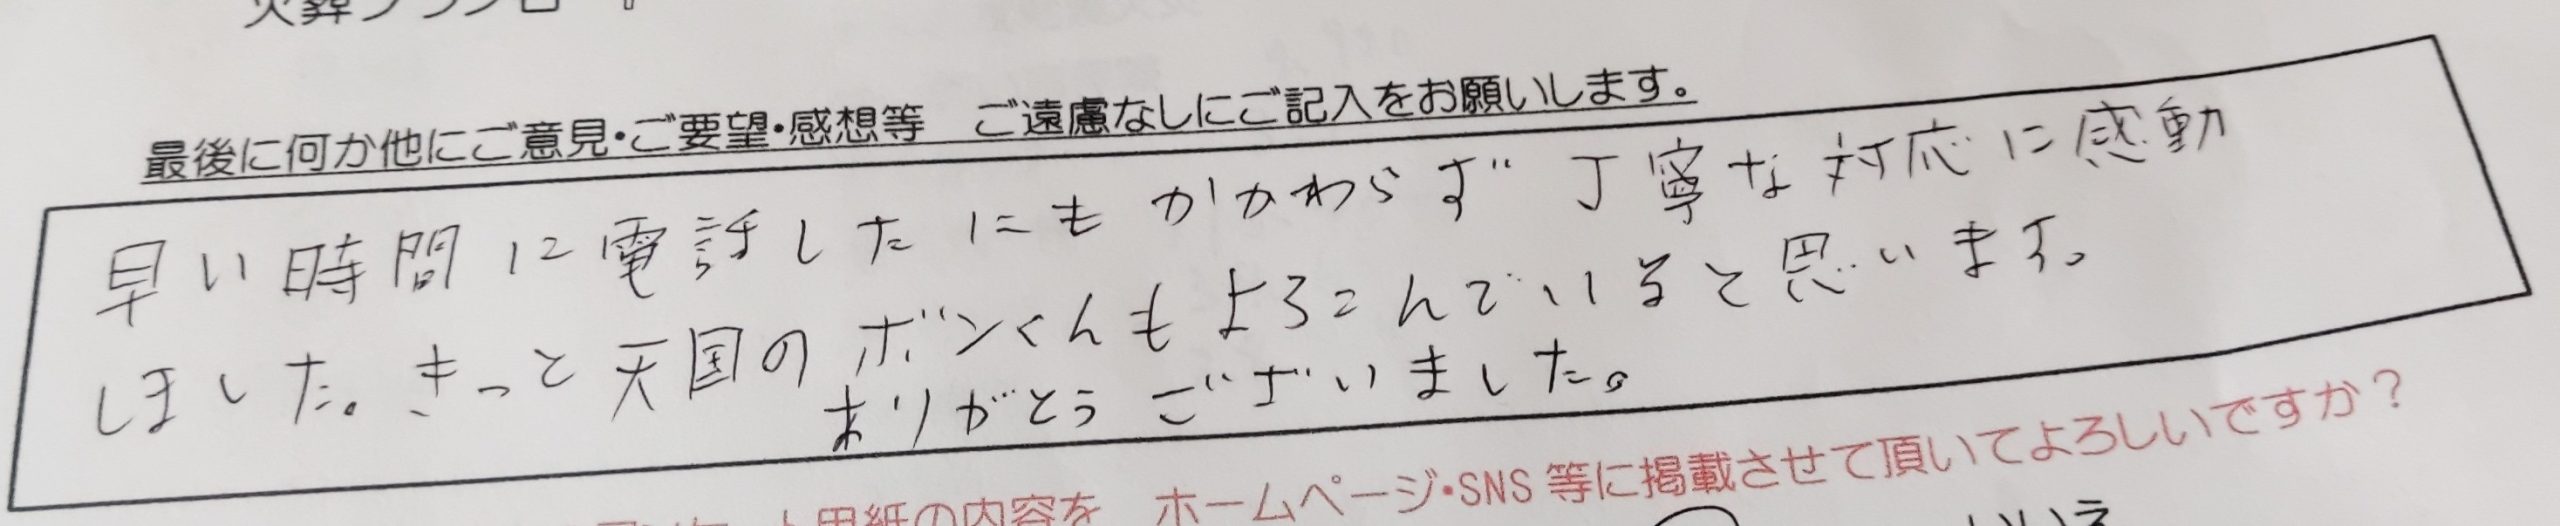 最後に何か他にご意見・ご要望・感想等　ご遠慮なしにご記入をお願いします。
早い時間に電話したにもかかわらず丁寧な対応に感動
しました。きっと天国のボンくんもよろこんでいると思います。
ありがとうございました。
用紙の内容を　ホームページ・SNS等に掲載させて頂いてよろしいですか？
いいえ